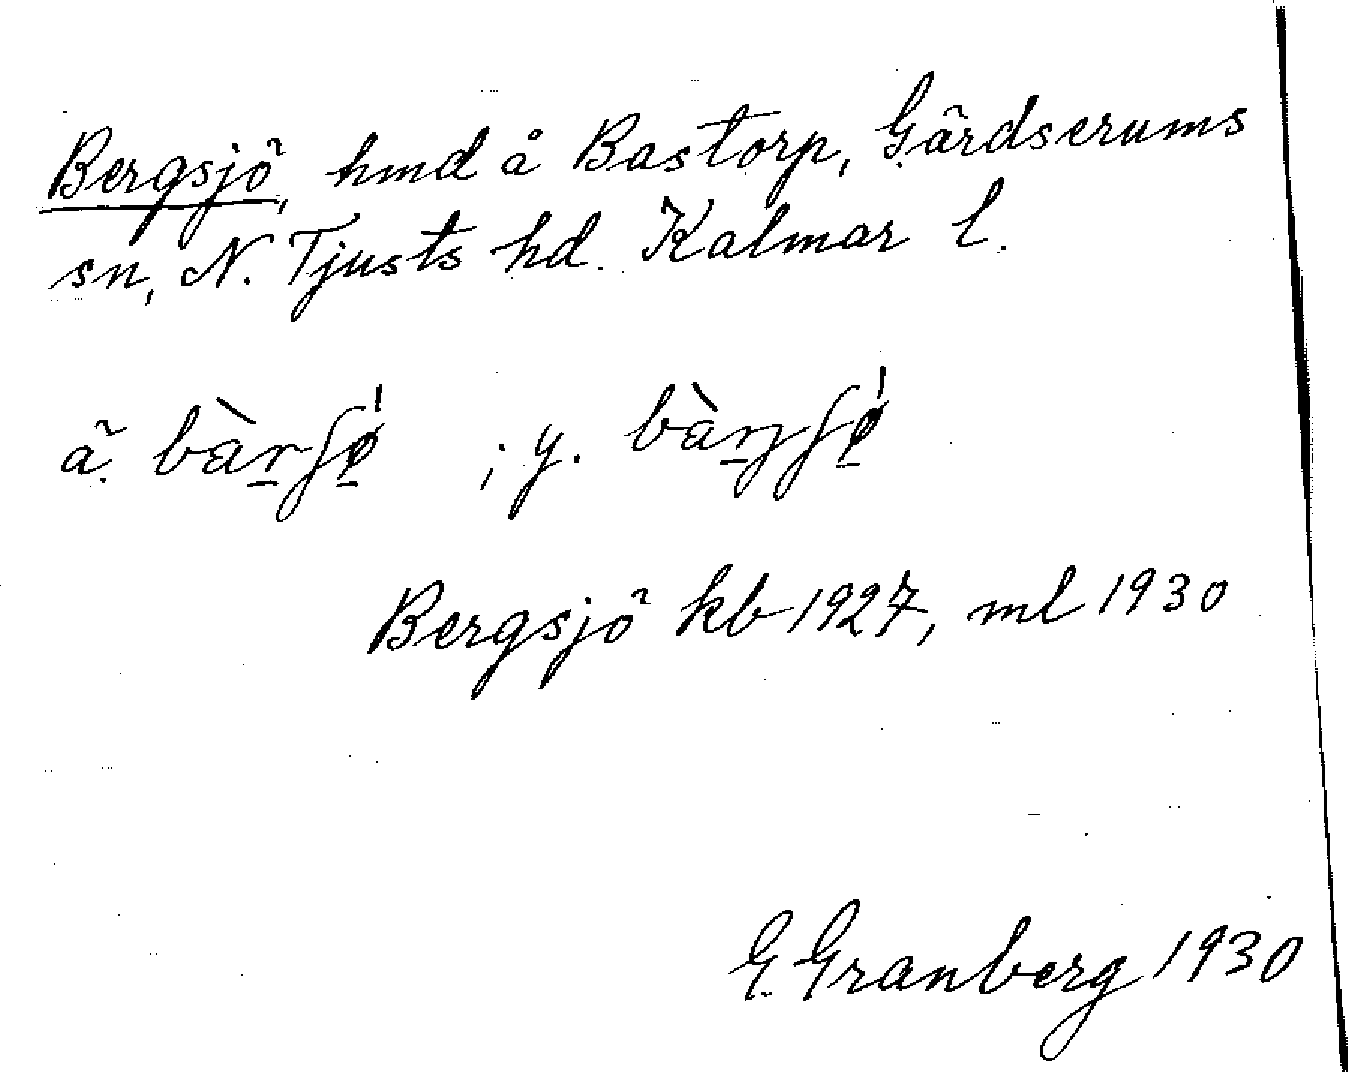 Bergsjö, hmd å Bastorp, Gärdserums
sn, N. Tjusts hd. Kalmar l.
ä. bàrʃǿ̱ ; y. bàrʃǿ̱
Bergsjö kb 1927, ml 1930
G. Granberg 1930